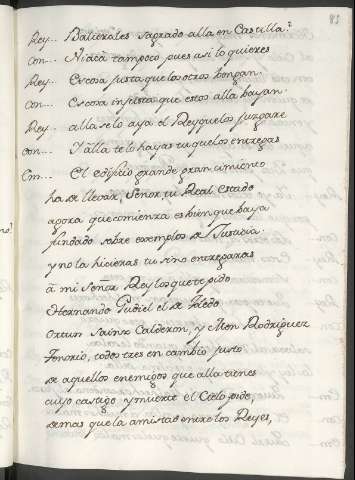 83
Rey... Valierales sagrado alla en Castilla?
Con... Ni acà tampoco pues asi lo quieres
Rey... Es cosa justa que los otros bengan.
Con... Es cosa injusta que estos alla bayan.
Rey... alla se lo aya el Rey que los juzgare
Con... Y alla te lo hayas tu que los entregas
Em... El edificio grande gran cimiento
ha de llevar, Señor, tu Real estado
agora que comienza es bien que vaya
fundado sobre exemplos de Justicia
y no la hicieras tu sino entregaras
à mi Señor Rey los que te pido
Hernando Gudiel el de Toledo
Ortun Sainz Calderon, y Men Rodriguez
Tenorio, todos tres en cambio justo
de aquellos enemigos que alla tienes
cuyo castigo y muerte el Cielo pide,
demas que la amistad entre los Reyes,